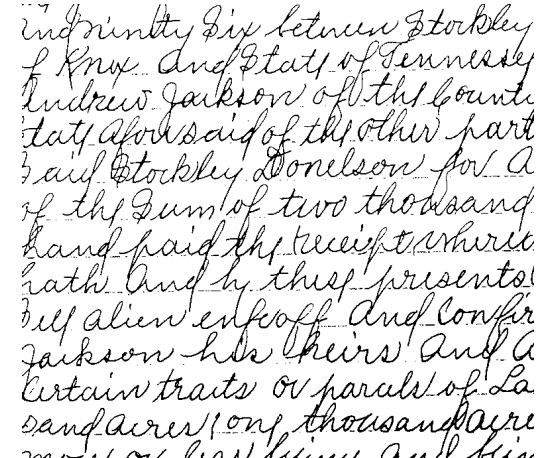 and ninity Six between Stockley
of Knox and State of Tennessy
Andrew Jackson of the Count
State aforesaid of the other part
Said Stockley Donelson for A
of the Sum of two thousand
hand paid the receipt where
hath and by these presents
Sell alien enfeoff and Confir
Jackson his heirs and A
Certain traits or parcels of La
sand acres, one thousand acre
more or less lying and bein